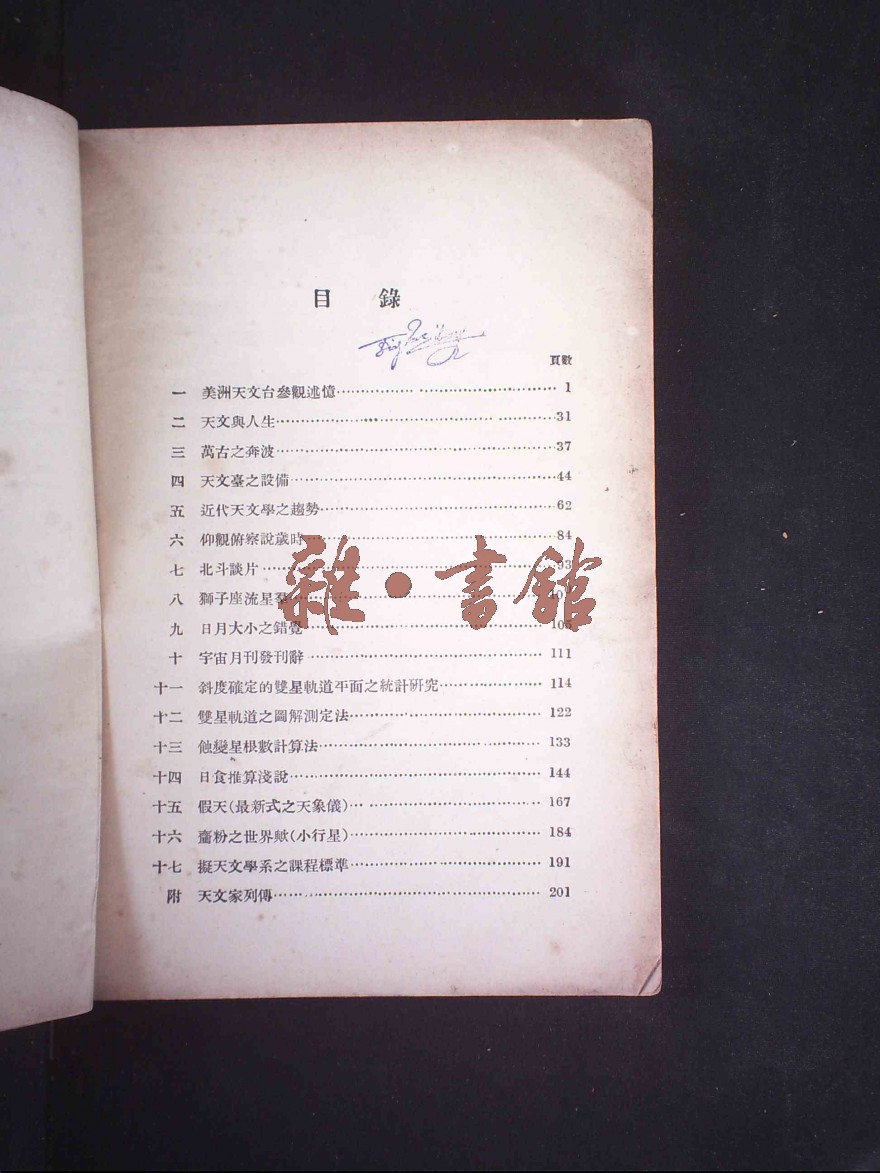 目 錄
頁數
一 美洲天文台參觀述憶 1
二 天文與人生 31
三 萬古之奔波 37
四 天文臺之設備 44
五 近代天文學之趨勢 62
六 仰觀俯察說歲時 84
七 北斗談片 93
八 獅子座流星羣
九 日月大小之錯覺 105
十 宇宙月刊發刊辭 111
十一 斜度確定的雙星軌道平面之統計研究 114
十二 雙星軌道之圖解測定法 122
十三 蝕變星根數計算法 133
十四 日食推算淺說 144
十五 假天(最新式之天象儀) 167
十六 齏粉之世界歟(小行星) 184
十七 擬天文學系之課程標準 191
附 天文家列傳 201
雜·書館